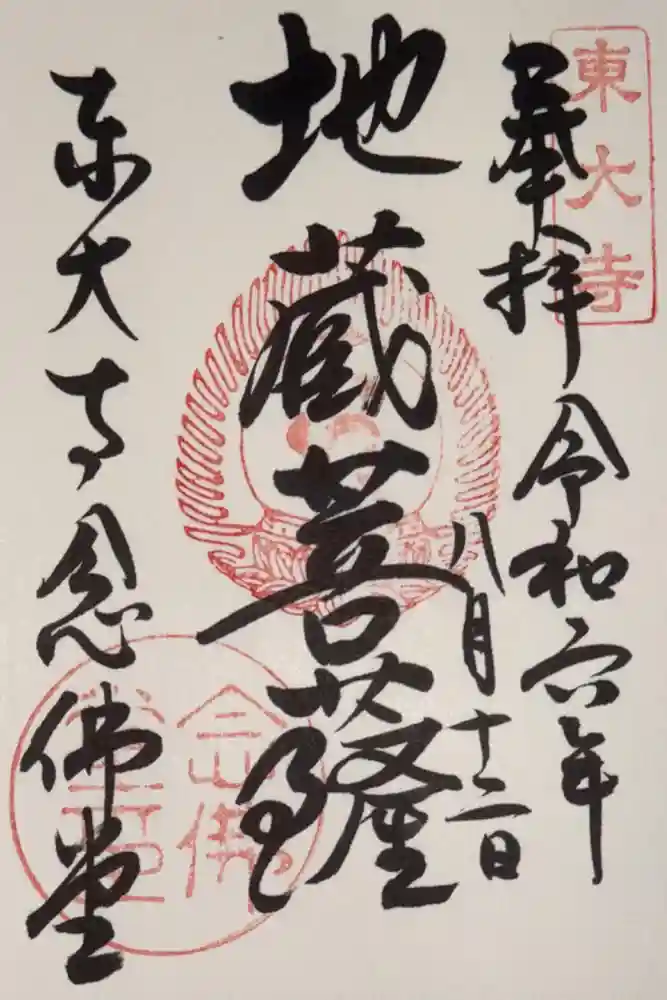 東大寺
奉拝
令和六年
八月十二日
地蔵菩薩
東大寺念佛堂
念佛